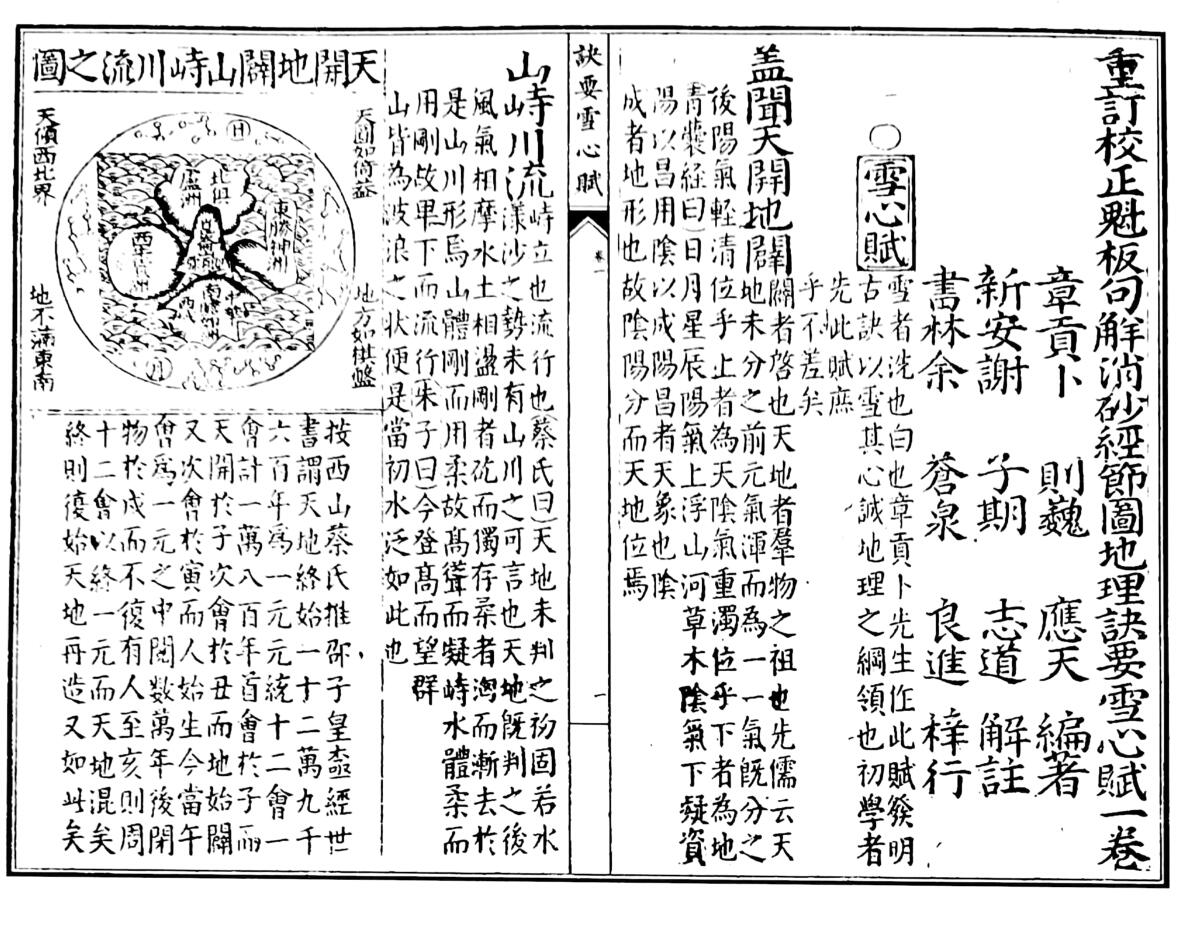 重訂校正魁板句解消砂經節圖地理訣要雪心賦一卷
章貢卜 則巍 應天 編著
新安謝 子期 志道 解註
書林余 蒼泉 良進 梓行
○雪心賦
雪者洗也白也章貢卜先生作此賦發明
古訣以雪其心誠地理之綱領也初學者
先此賦庶
乎不差矣
盖聞天開地闢
闢者啓也天地者羣物之祖也先儒云天
地未分之前元氣渾而為一一氣既分之
後陽氣輕清位乎上者為天陰氣重濁位乎下者為地
青囊經曰日月星辰陽氣上浮山河草木陰氣下凝資
陽以昌用陰以成陽昌者天象也陰
成者地形也故陰陽分而天地位焉
訣要雪心賦
卷一
一
山峙川流
峙立也流行也蔡氏曰天地未判之初固若水
漾沙之勢未有山川之可言也天地既判之後
風氣相摩水土相盪剛者屹而獨存柔者淘而漸去於
是山川形焉山體剛而用柔故高聳而凝峙水體柔而
用剛故卑下而流行朱子曰今登高而望群
山皆為波浪之狀便是當初水泛如此也
天開地闢山峙川流之圖
天圓如倚盖
地方如棋盤
天傾西北界
地不滿東南
日
月
北俱盧洲
東勝神洲
南贍部洲
中華
按西山蔡氏推邵子皇極經世
書謂天地終始一十二萬九千
六百年爲一元元統十二會一
會計一萬八百年首會於子而
天開於子次會於丑而地始闢
又次會於寅而人始生今當午
會爲一元之中閱數萬年後閉
物於戌而不復有人至亥則周
十二會以終一元而天地混矣
終則復始天地再造又如此矣